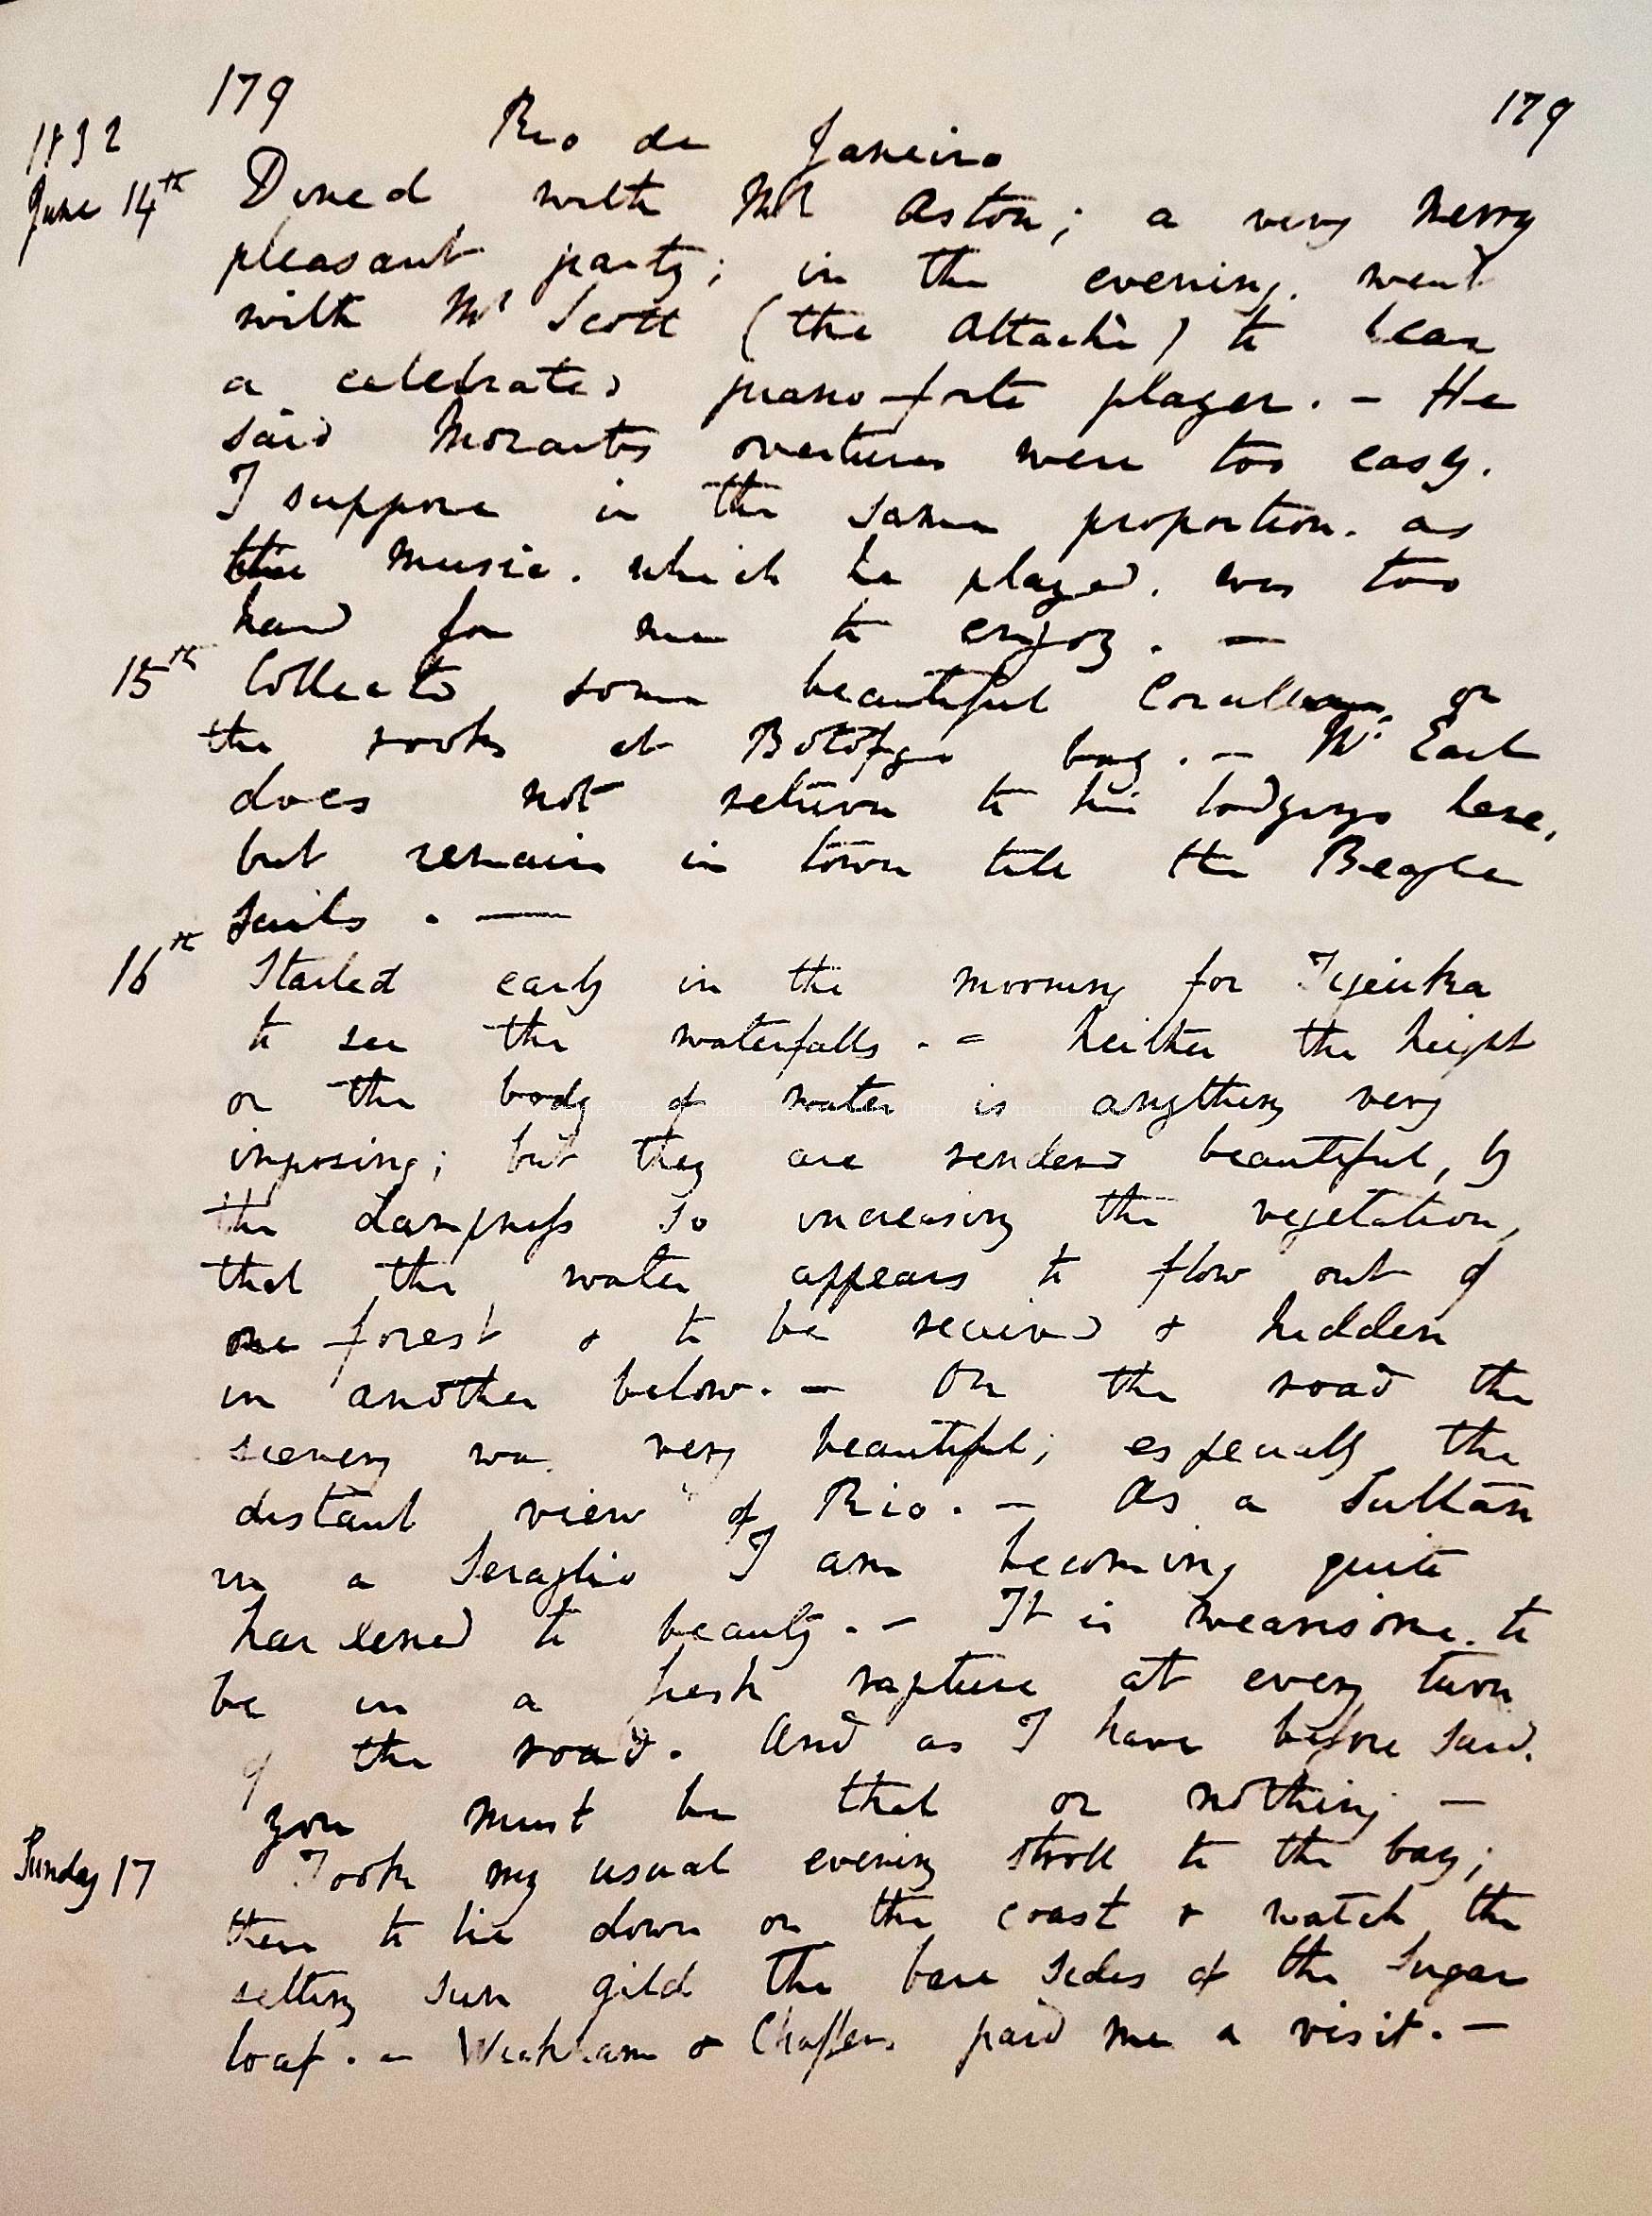 179 179
1832 Rio de Janeiro
June 14th Dined with Mr Aston; a very merry
pleasant party; in the evening. went
with Mr Scott (the Attachè) to hear
a celebrated piano-forte player. — He
said Mozarts overtures were too easy.
I suppose in the same proportion. as
the music. which he played. was too
hard for me to enjoy. —
15th Collected some beautiful Corallinas. on
the rocks at Botofogo bay. — Mr. Earl
does not return to his lodgings here,
but remain in town till the Beagle
sails. —
16th Started early in the morning for Tijeuka
to see the waterfalls. — neither the height
or the body of water is anything very
imposing; but they are rendered beautiful, by
the dampness so increasing the vegetation,
that the water appears to flow out of
one forest & to be received & hidden
in another below. — On the road the
scenery was very beautiful; especially the
distant view of Rio. — As a Sultan
in a Seraglio I am becoming quite
hardened to beauty. — It is wearisome. to
be in a fresh rapture at every turn
of the road. And as I have before said.
you must be that or nothing —
Sunday 17 Took my usual evening stroll to the bay;
there to lie down on the coast & watch the
setting sun gild the bare sides of the Sugar
loaf. — Wickham & Chaffers paid me a visit. —